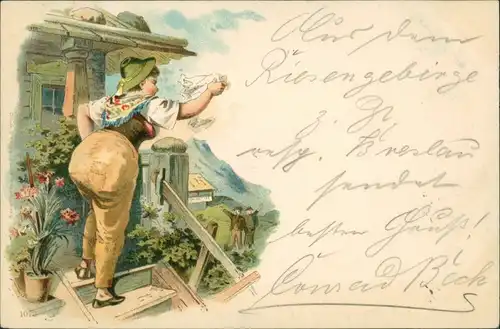 Aus dem
Riesengebirge
z. Zt.
resp. Breslau
sendet
besten Gruß!
Conrad Bech
107